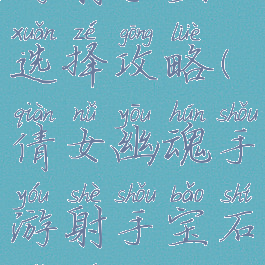 xuǎn zé gōng lüè
选择攻略(
qiàn nǚ yōu hún shǒu
倩女幽魂手
yóu shè shǒu bǎo shí
游射手宝石